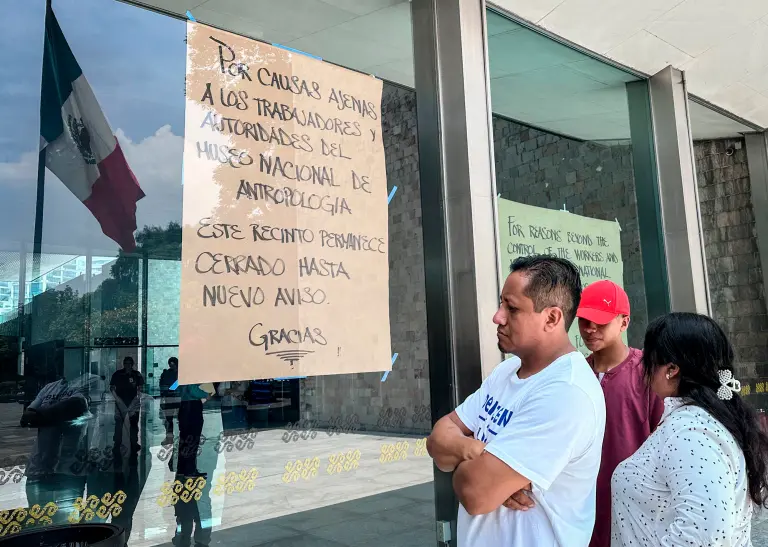 POR CAUSAS AJENAS
A LOS TRABAJADORES Y
AUTORIDADES DEL
MUSEO NACIONAL DE
ANTROPOLOGIA
ESTE RECINTO PERMANECE
CERRADO HASTA
NUEVO AVISO.
GRACIAS
FOR REASONS BEYOND THE
CONTROL OF THE WORKERS AND
NATIONAL